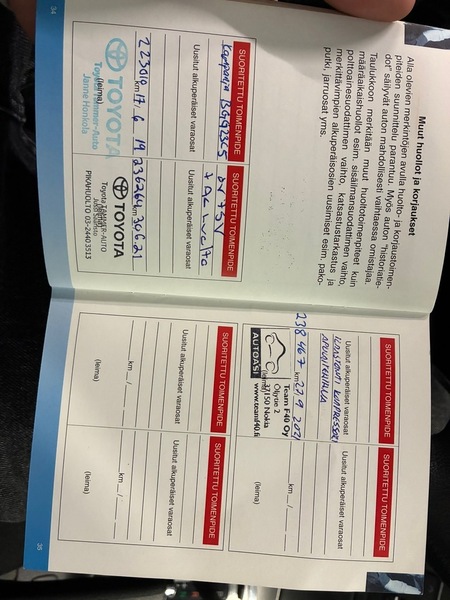 Muut huollot ja korjaukset
Alla olevien merkintöjen avulla huolto- ja korjaustoimen-
piteiden suunnittelu parantuu. Myös auton "historiatie-
dot" säilyvät auton mahdollisesti vaihtaessa omistajaa.
Taulukkoon merkitään muut huoltotoimenpiteet kuin
määräaikaishuollot esim. sisäilmansuodattimen vaihto,
polttoainesuodattimen vaihto, katsastustarkastus ja
merkittävimpien alkuperäisosien uusimiset esim. pako-
putki, jarruosat yms.
SUORITETTU TOIMENPIDE
Uusitut alkuperäiset varaosat
223010 km 17. 6 19
(leima)
TOYOTA
Janne Honkola
SUORITETTU TOIMENPIDE
Uusitut alkuperäiset varaosat
236264 km 30.6.21
TOYOTA
PIKAHUOLTO 03-2440 3513
34
SUORITETTU TOIMENPIDE
Uusitut alkuperäiset varaosat
238 467 km 27.9
AUTOASI
Team F40 Oy
Öljytie 2
37150 Nokia
www.teamf40.fi
SUORITETTU TOIMENPIDE
Uusitut alkuperäiset varaosat
km __ / __
(leima)
SUORITETTU TOIMENPIDE
Uusitut alkuperäiset varaosat
km __ / __
(leima)
SUORITETTU TOIMENPIDE
Uusitut alkuperäiset varaosat
km __ / __
(leima)
35